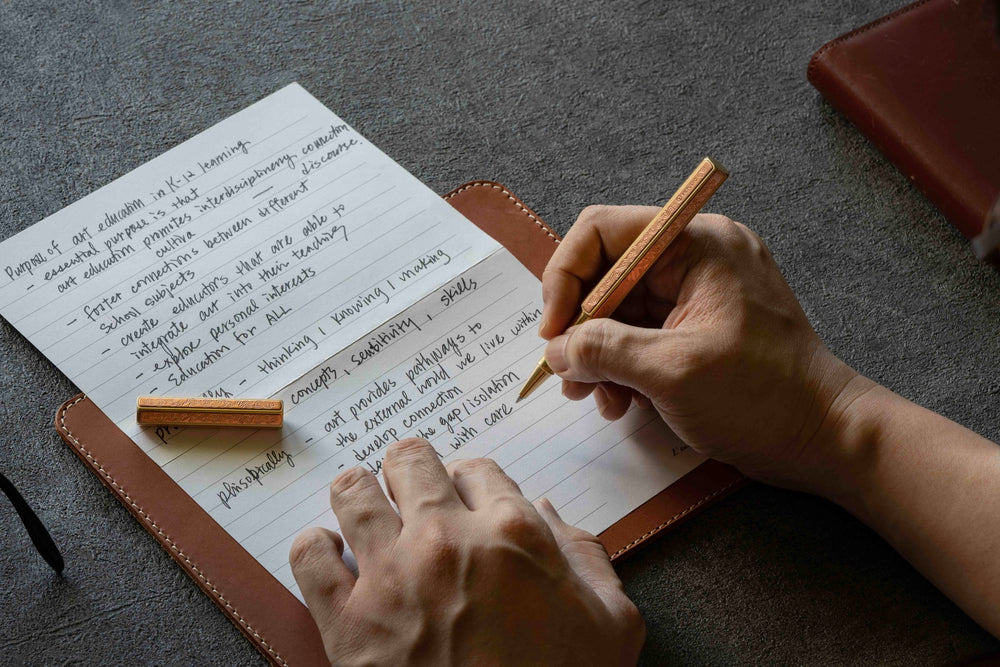 Purpose of art education in K-12 learning
- essential purpose is that
art education promotes interdisciplinary connection
cultiva discourse.
- foster connections between different
school subjects
- create educators that are able to
integrate art into their teaching
- explore personal interests
- Education for ALL
- thinking / knowing / making
concepts, sensitivity, skills
phisopically
- art provides pathways to
the external world we live within
- develop connection
the gap/isolation
with care